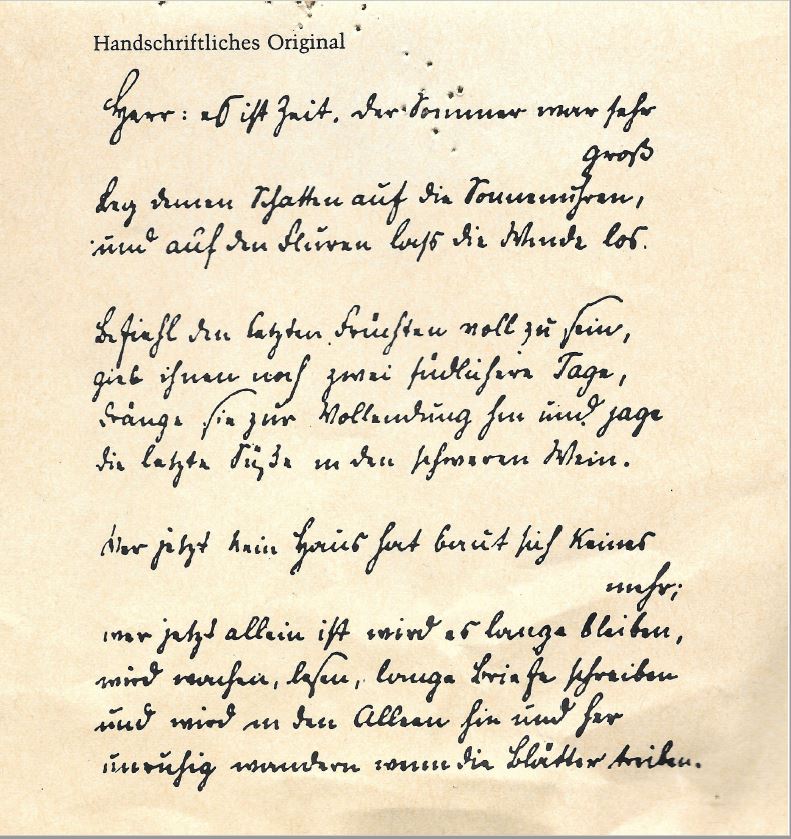 Handschriftliches Original
Herr: es ist Zeit. Der Sommer war sehr
groß
Leg deinen Schatten auf die Sonnenuhren,
und auf den Fluren lass die Winde los.
Befiehl den letzten Früchten voll zu sein,
gieb ihnen noch zwei südlichere Tage,
dränge sie zur Vollendung hin und jage
die letzte Süße in den schweren Wein.
Wer jetzt kein Haus hat baut sich keines
mehr;
wer jetzt allein ist wird es lange bleiben,
wird wachen, lesen, lange Briefe schreiben
und wird in den Alleen hin und her
unruhig wandern wenn die Blätter treiben.